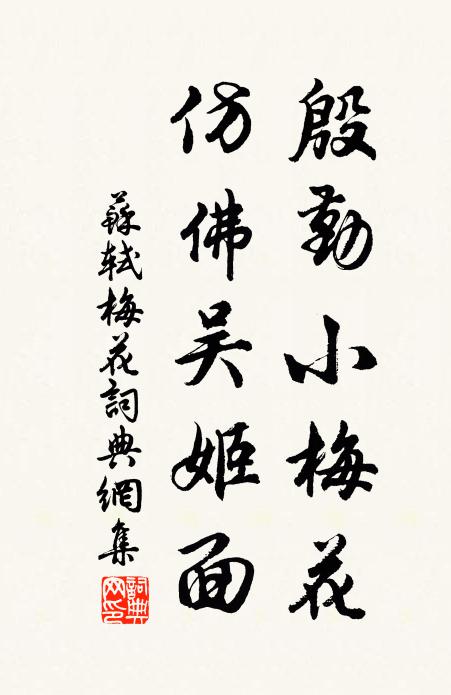 殷勤小梅花
仿佛吴姬面
蘇軾梅花詞典網集
詞典網印